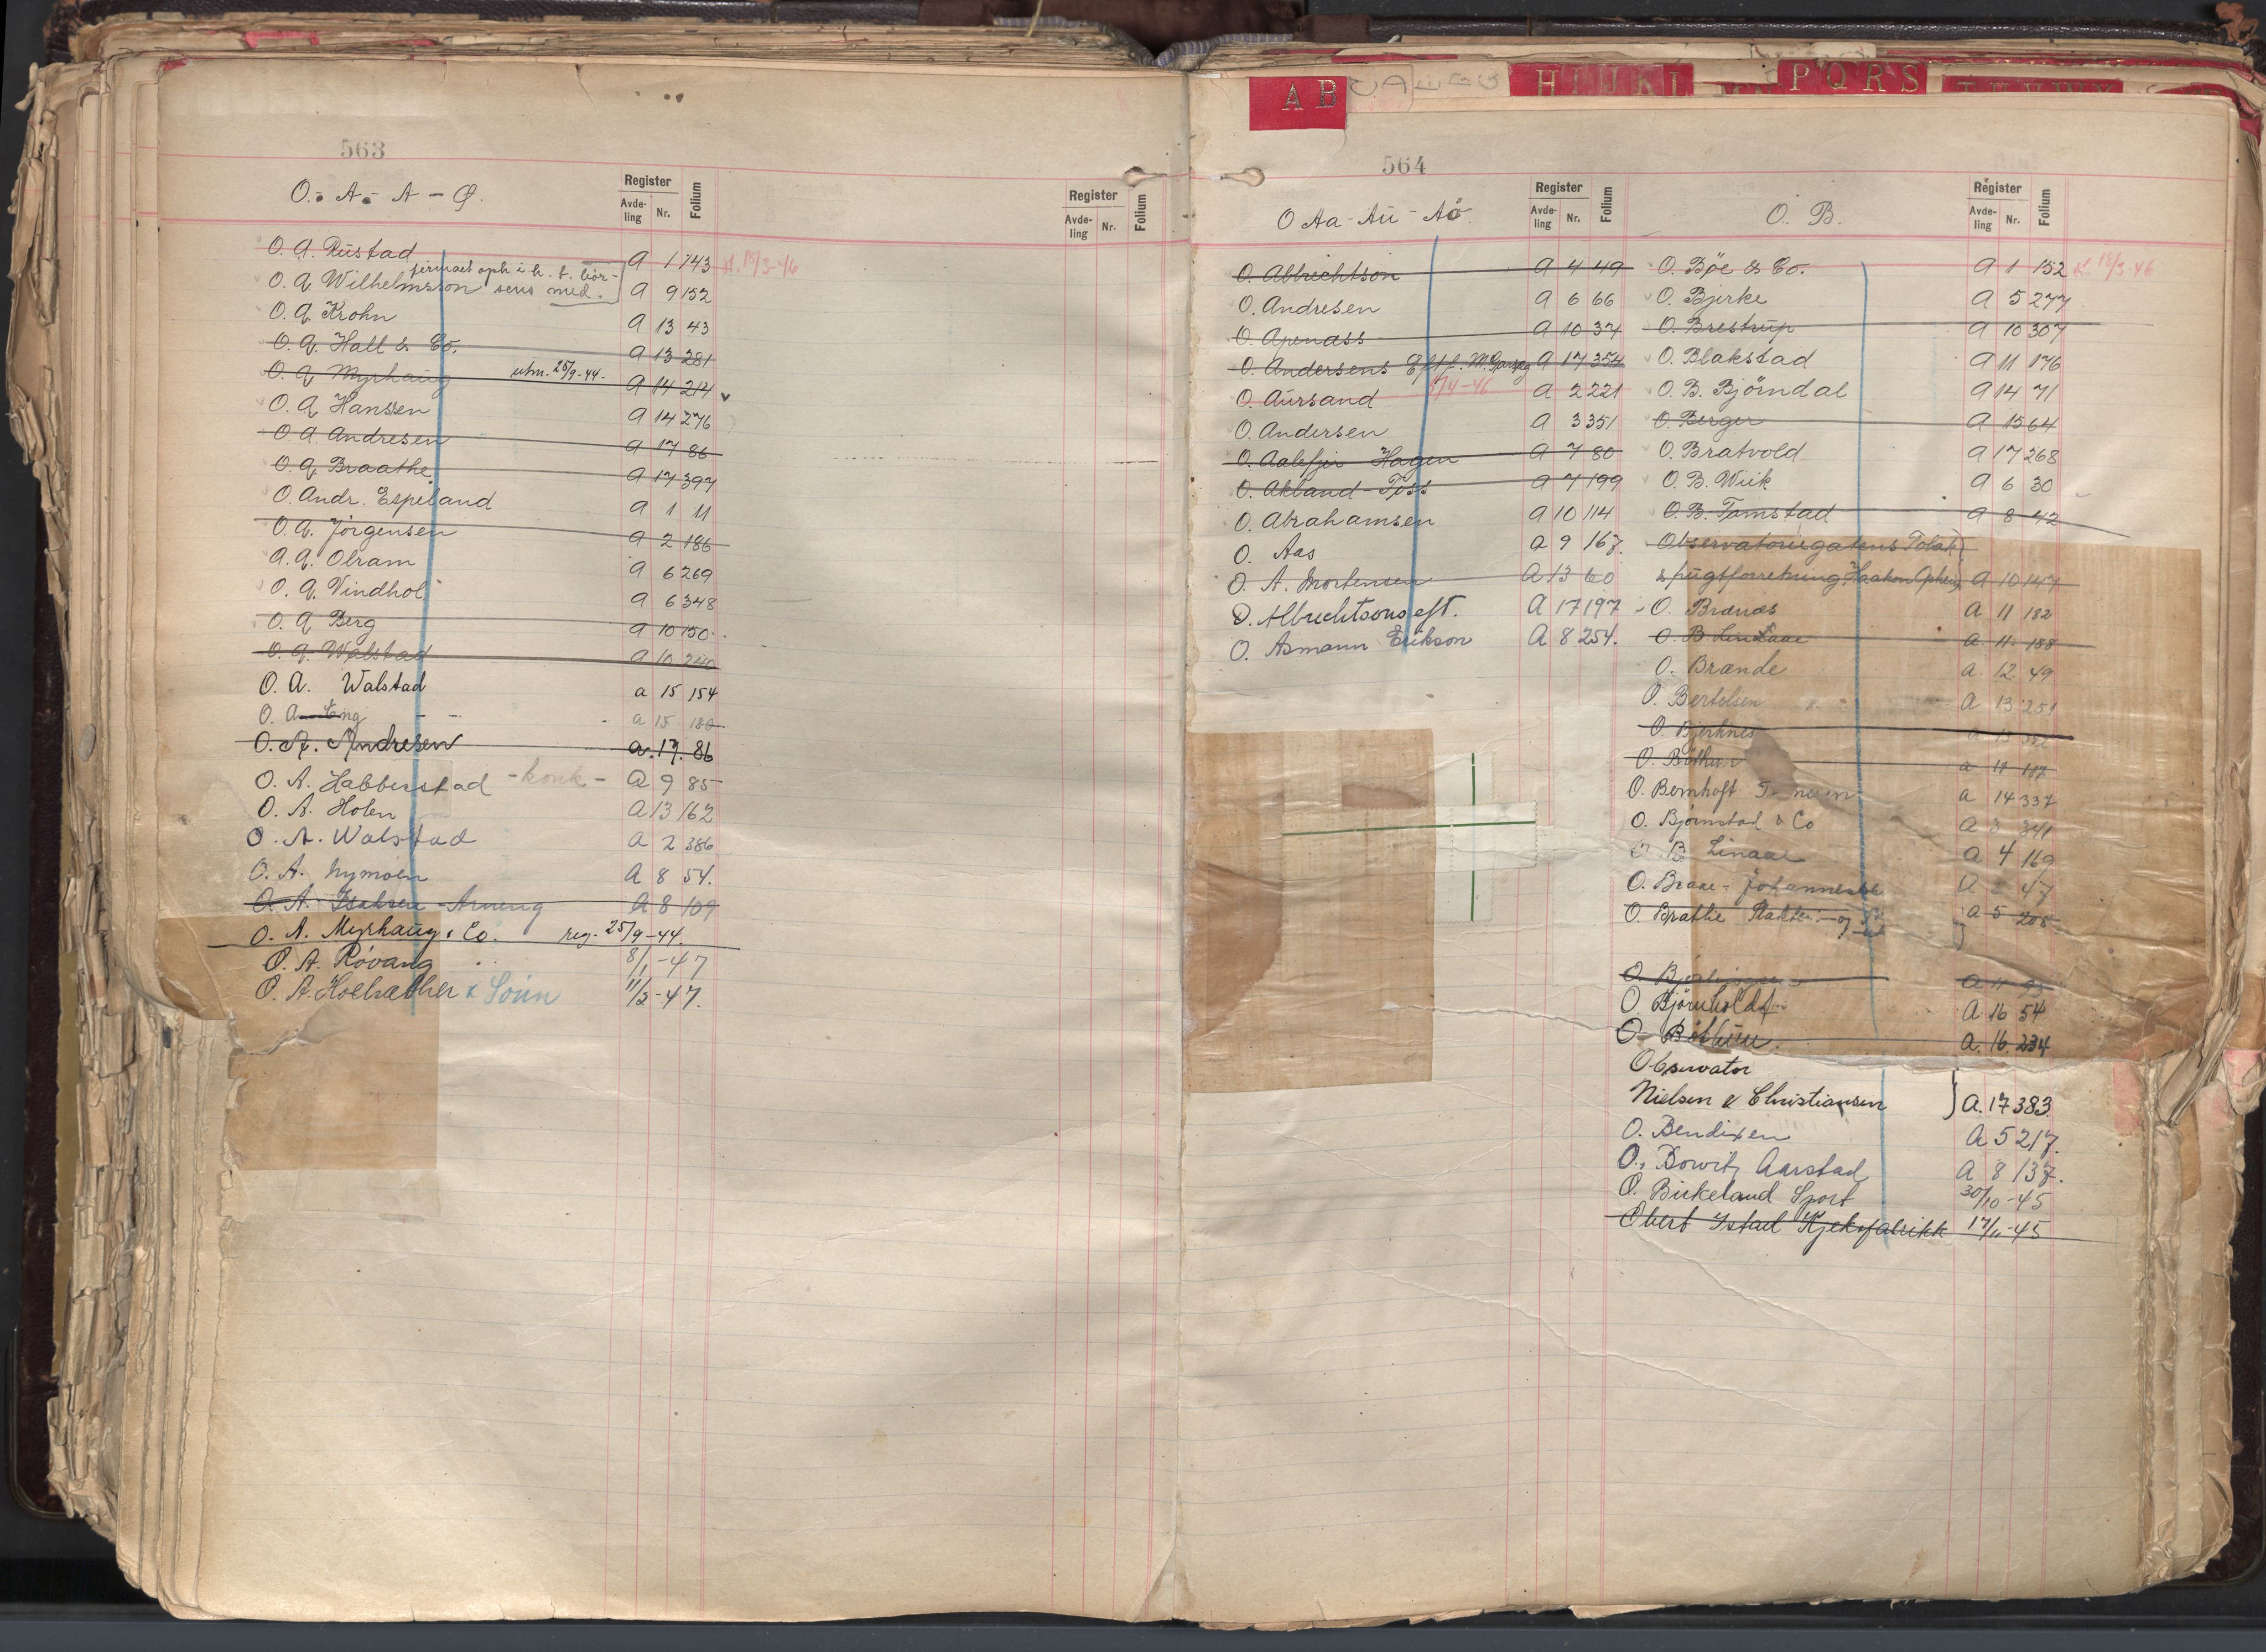 563
O. A. A - Ø.
Register
Avde-
ling
Nr.
Folium
Register
Avde-
ling
Nr.
Folium
O. A. Rustad A 1 743 18/3-46
firmaet oph i h. t. bör-
O. A. Wilhelmsson sens med. A 9 152
O. A. Krohn A 13 43
O. A. Hall & Co. A 13 281
O. A. Myrhaug utm. 25/9-44. A 14 214
O. A. Hanssen A 14 276
O. A. Andresen A 17 86
O. A. Braathe A 17 397
O. Andr. Espeland A 1 11
O. A. Jörgensen A 2 186
A. A. Olram A 6 269
O. A. Vindhol A 6 348
O. A. Berg A 10 150
O. A. Walstad A 10 240
O. A. Walstad a 15 154
O. A. Eng a 15 180
O. A. Andresen a. 17. 86
O. A. Habberstad - konk - A 9 85
O. A. Holen A 13 162
O. A. Walstad A 2 386
O. A. Nymoen A 8 54.
O. A. Isaksen A 8 109
O. A. Myrhaug & Co. reg. 25/9-44.
O. A. Rövang 8/1-47
O. A. & Sönn 11/3-47.
A B
H I J K L
P Q R S
564
O Aa - Au - Aö.
Register
Avde-
ling
Nr.
Folium
O. Albrechtson A 4 49
O. Andresen A 6 66
O. Apenass A 10 37
O. Andersens Eftf. A 17 354
O. Aursand 5/4-46 A 2 221
O. Andersen A 3 351
O. Hagen A 7 80
O. Akland-Foss A 7 199
O. Abrahamsen A 10 114
O. Aas A 9 167.
O. A. Mortensen A 13 60
O. Albrechtsons eft. A 17 197
O. Asmann Erikson A 8 254.
O. B.
Register
Avde-
ling
Nr.
Folium
O. Böe & Co. A 1 152 18/3-46
O. Bjerke A 5 277
O. Brestrup A 10 307
O. Blakstad A 11 176
O. B. Björndal A 14 71
O. Berger A 15 64
O. Bratvold A 17 268
O. B. Wiik A 6 30
O. B. Tomstad A 8 42
Observatoriegatens Tobak
& frugtforretning, Haakon A 10 147
O. Branæs A 11 182
O. B. Lindaae A 11. 188
O. Brænde a. 12. 49
O. Bertelsen A 13 251
O. Bjerknes a 13 382
O. a 11 117
O. Bernhoft a 14 337
O. Bjørnstad & Co A 3 341
O. B. Linaae A 4 169
O. Brane - Johannesen A 47
O. Brathe a 5 205
O. A 11 95
O. Björnholdt A 16 54
O. Böthun. A. 16. 234
Observator
Nielsen & Christiansen A. 17 383.
O. Bendixen A 5 217.
O. Bowitz Aarstad A 8 137.
O. Birkeland Sport 30/10-45
Obert Istad Kjeksfabrikk 17/11-45